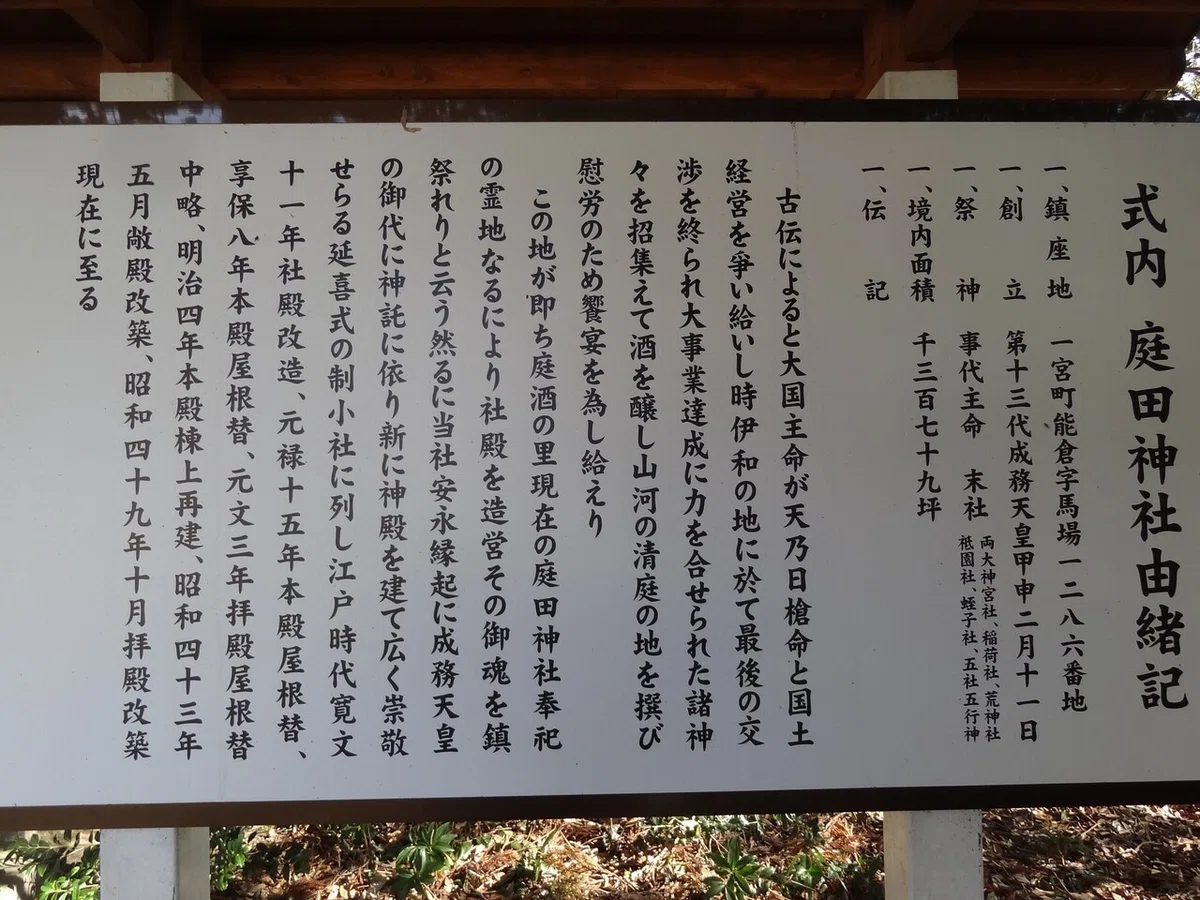 式内 庭田神社由緒記
一、鎮座地 一宮町能倉字馬場一二八六番地
一、創立 第十三代成務天皇甲申二月十一日
一、祭神 事代主命 末社 両大神宮社、稲荷社、荒神社
祗園社、蛭子社、五社五行神
一、境内面積 千三百七十九坪
一、伝記
古伝によると大国主命が天乃日槍命と国土
経営を爭い給いし時伊和の地に於て最後の交
渉を終られ大事業達成に力を合せられた諸神
々を招集えて酒を醸し山河の清庭の地を撰び
慰労のため饗宴を為し給えり
この地が即ち庭酒の里現在の庭田神社奉祀
の霊地なるにより社殿を造営その御魂を鎮
祭れりと云う然るに当社安永縁起に成務天皇
の御代に神託に依り新に神殿を建て広く崇敬
せらる延喜式の制小社に列し江戸時代寛文
十一年社殿改造、元禄十五年本殿屋根替、
享保八年本殿屋根替、元文三年拝殿屋根替
中略、明治四年本殿棟上再建、昭和四十三年
五月幣殿改築、昭和四十九年十月拝殿改築
現在に至る